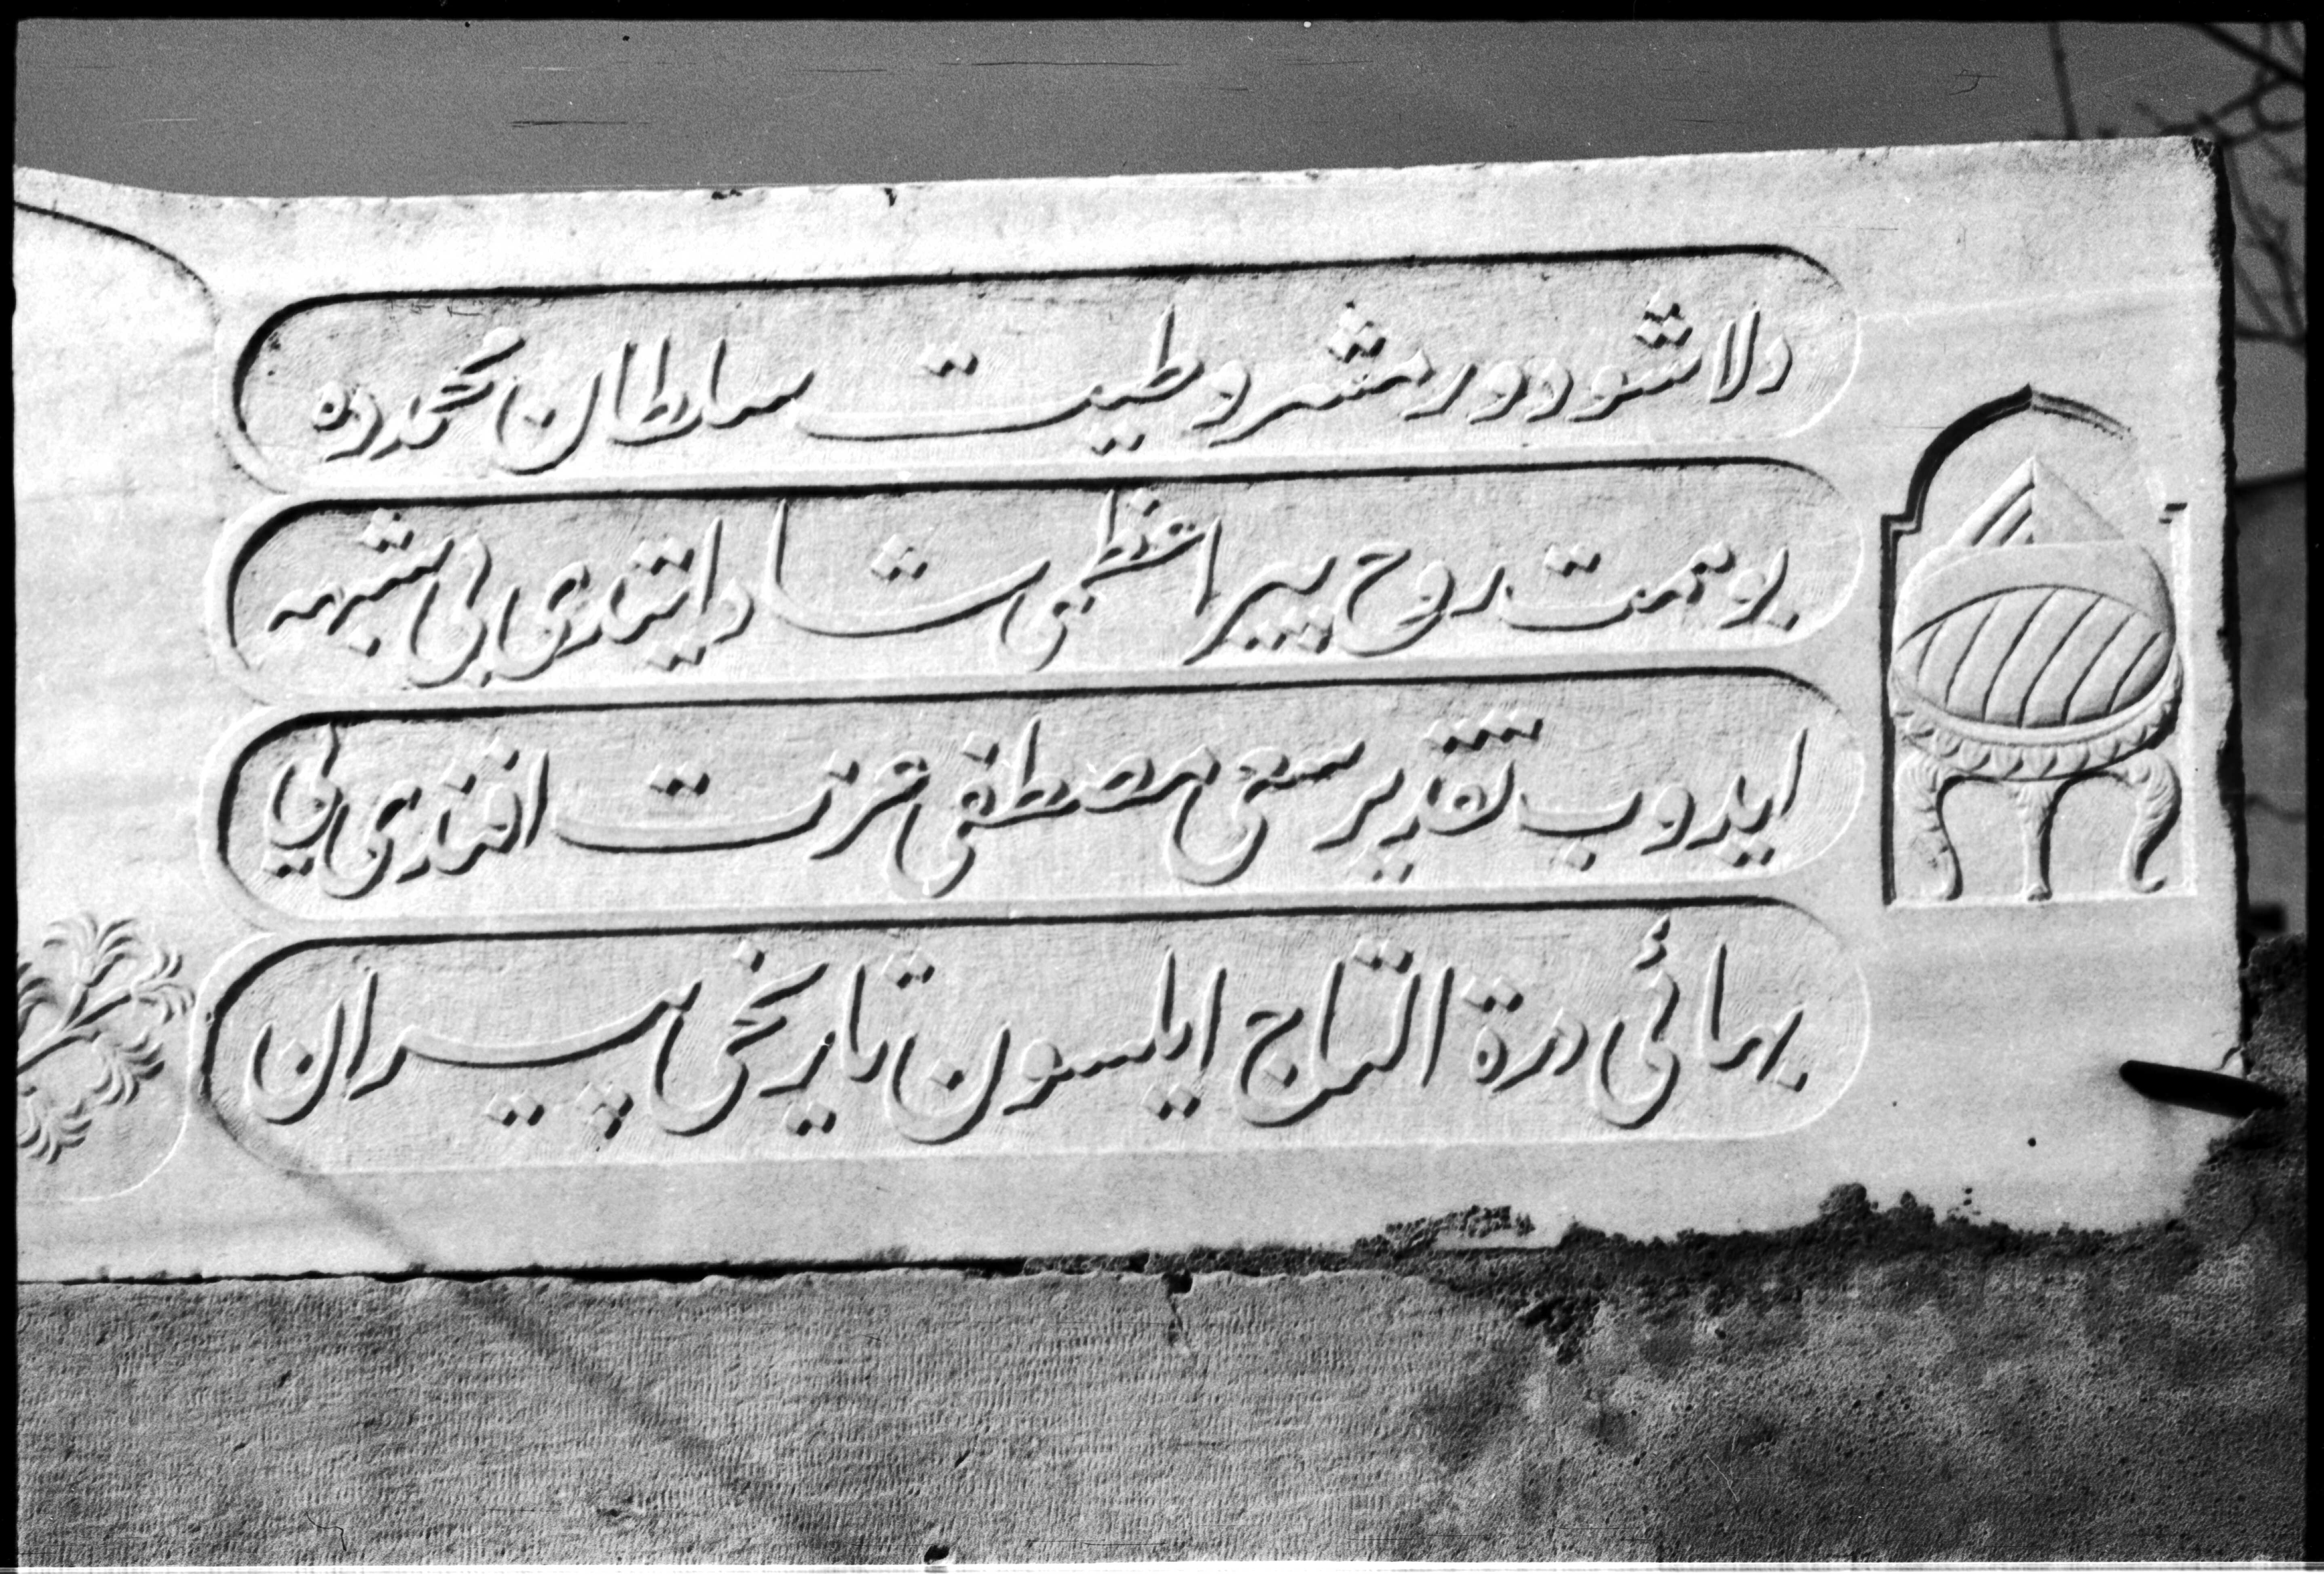 دلا شو دور مشروطيت سلطان محمدده
بو همت روح پير اعظمى شاد ايتدى بى شبهه
ايدوب تقدير سعى مصطفى عزت افندى يى
بهائى درة التاج ايلسون تاريخى پيران